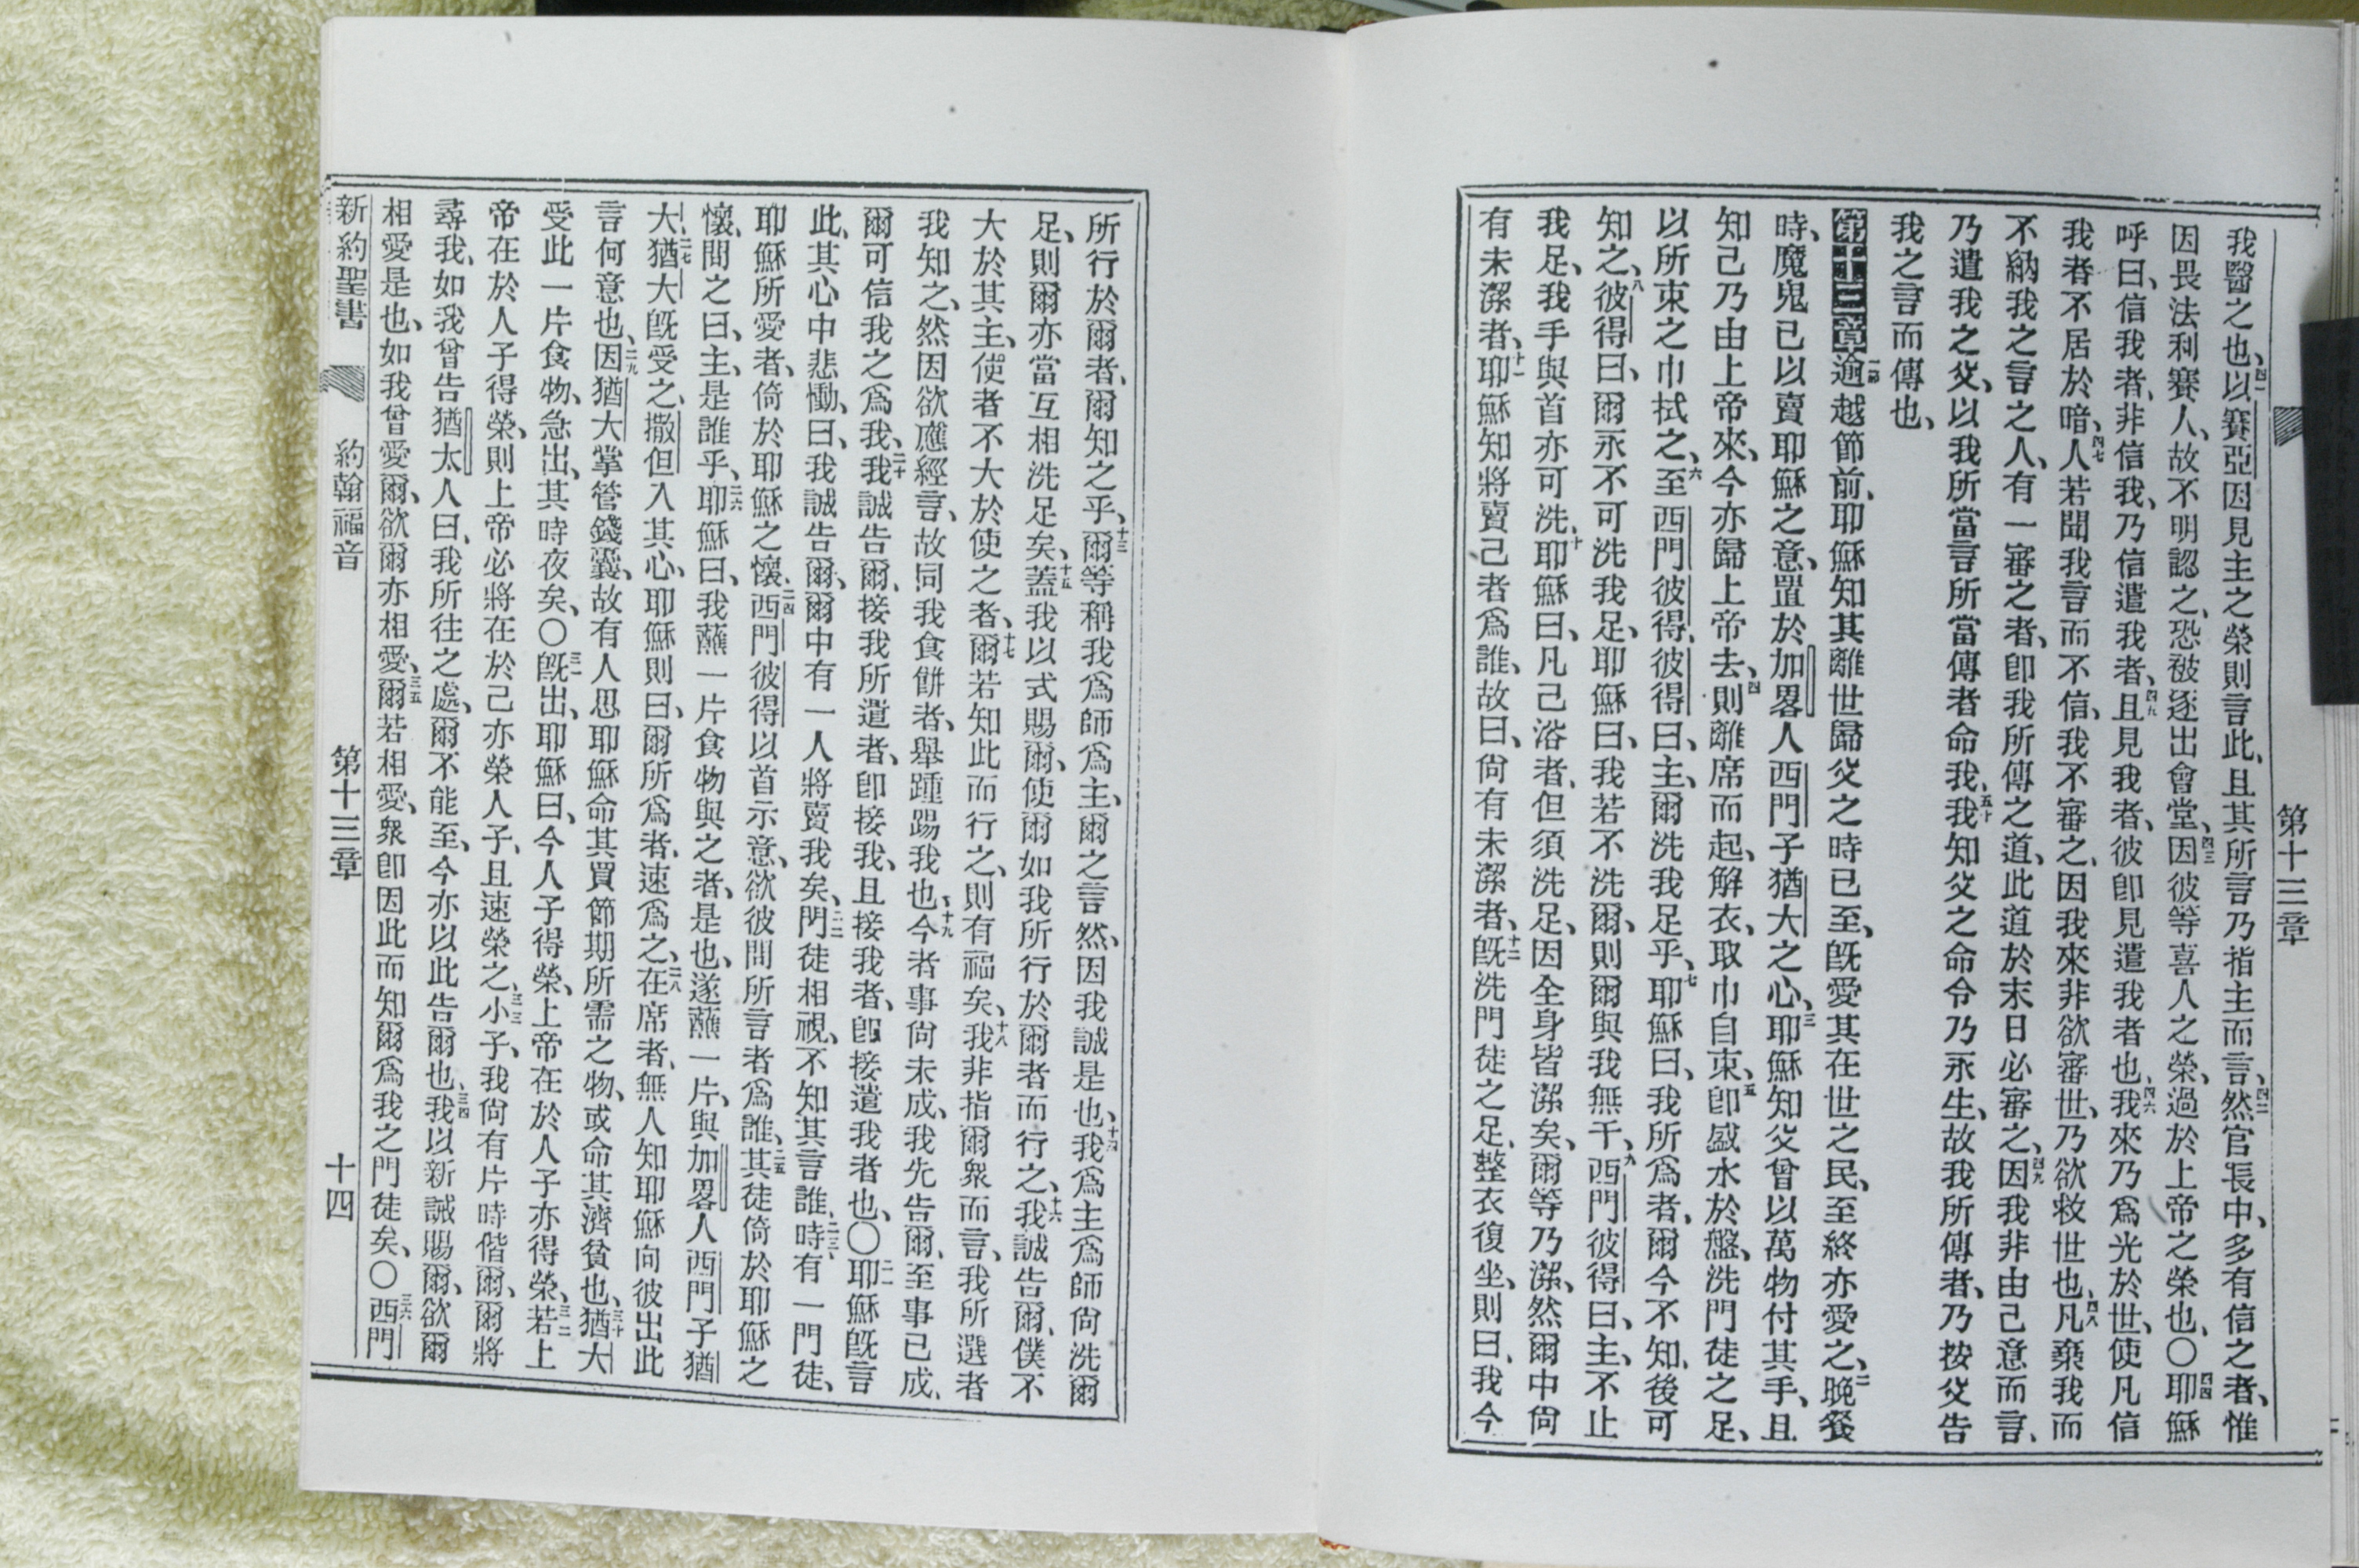 第十三章
我醫之也、四一以賽亞因見主之榮則言此、且其所言乃指主而言、四二然官長中、多有信之者、惟
因畏法利賽人、故不明認之、恐被逐出會堂、四三因彼等喜人之榮、過於上帝之榮也、〇四四耶穌
呼曰、信我者、非信我、乃信遣我者、四五且見我者、彼卽見遣我者也、四六我來乃爲光於世、使凡信
我者不居於暗、四七人若聞我言而不信、我不審之、因我來非欲審世、乃欲救世也、四八凡棄我而
不納我之言之人、有一審之者、卽我所傳之道、此道於末日必審之、四九因我非由己意而言、
乃遣我之父、以我所當言所當傳者命我、五十我知父之命令乃永生、故我所傳者、乃按父告
我之言而傳也、
第十三章一節逾越節前、耶穌知其離世歸父之時已至、旣愛其在世之民、至終亦愛之、二晩餐
時、魔鬼已以賣耶穌之意、置於加畧人西門子猶大之心、三耶穌知父曾以萬物付其手、且
知己乃由上帝來、今亦歸上帝去、四則離席而起、解衣、取巾自束、五卽盛水於盤、洗門徒之足、
以所束之巾拭之、六至西門彼得、彼得曰、主、爾洗我足乎、七耶穌曰、我所爲者、爾今不知、後可
知之、八彼得曰、爾永不可洗我足、耶穌曰、我若不洗爾、則爾與我無干、九西門彼得曰、主、不止
我足、我手與首亦可洗、十耶穌曰、凡已浴者、但須洗足、因全身皆潔矣、爾等乃潔、然爾中尙
有未潔者、十一耶穌知將賣己者爲誰、故曰、尙有未潔者、十二旣洗門徒之足、整衣復坐、則曰、我今
所行於爾者、爾知之乎、十三爾等稱我爲師爲主、爾之言然、因我誠是也、十四我爲主爲師尙洗爾
足、則爾亦當互相洗足矣、十五蓋我以式賜爾、使爾如我所行於爾者而行之、十六我誠告爾、僕不
大於其主、使者不大於使之者、十七爾若知此而行之、則有福矣、十八我非指爾衆而言、我所選者
我知之、然因欲應經言、故同我食餅者、舉踵踢我也、十九今者事尙未成、我先告爾、至事已成、
爾可信我之爲我、二十我誠告爾、接我所遣者、卽接我、且接我者、卽接遣我者也、〇二一耶穌旣言
此、其心中悲慟、曰、我誠告爾、爾中有一人將賣我矣、二二門徒相視、不知其言誰、二三時、有一門徒、
耶穌所愛者、倚於耶穌之懷、二四西門彼得以首示意、欲彼問所言者爲誰、二五其徒倚於耶穌之
懷、問之曰、主、是誰乎、二六耶穌曰、我蘸一片食物與之者、是也、遂蘸一片、與加畧人西門子猶
大、二七猶大旣受之、撒但入其心、耶穌則曰、爾所爲者、速爲之、二八在席者、無人知耶穌向彼出此
言何意也、二九因猶大掌管錢囊、故有人思耶穌命其買節期所需之物、或命其濟貧也、三十猶大
受此一片食物、急出、其時夜矣、〇三一旣出、耶穌曰、今人子得榮、上帝在於人子亦得榮、三二若上
帝在於人子得榮、則上帝必將在於己亦榮人子、且速榮之、三三小子、我尙有片時偕爾、爾將
尋我、如我曾告猶太人曰、我所往之處、爾不能至、今亦以此告爾也、三四我以新誡賜爾、欲爾
相愛是也、如我曾愛爾、欲爾亦相愛、三五爾若相愛、衆卽因此而知爾爲我之門徒矣、〇三六西門
新約聖書 約翰福音 第十三章 十四